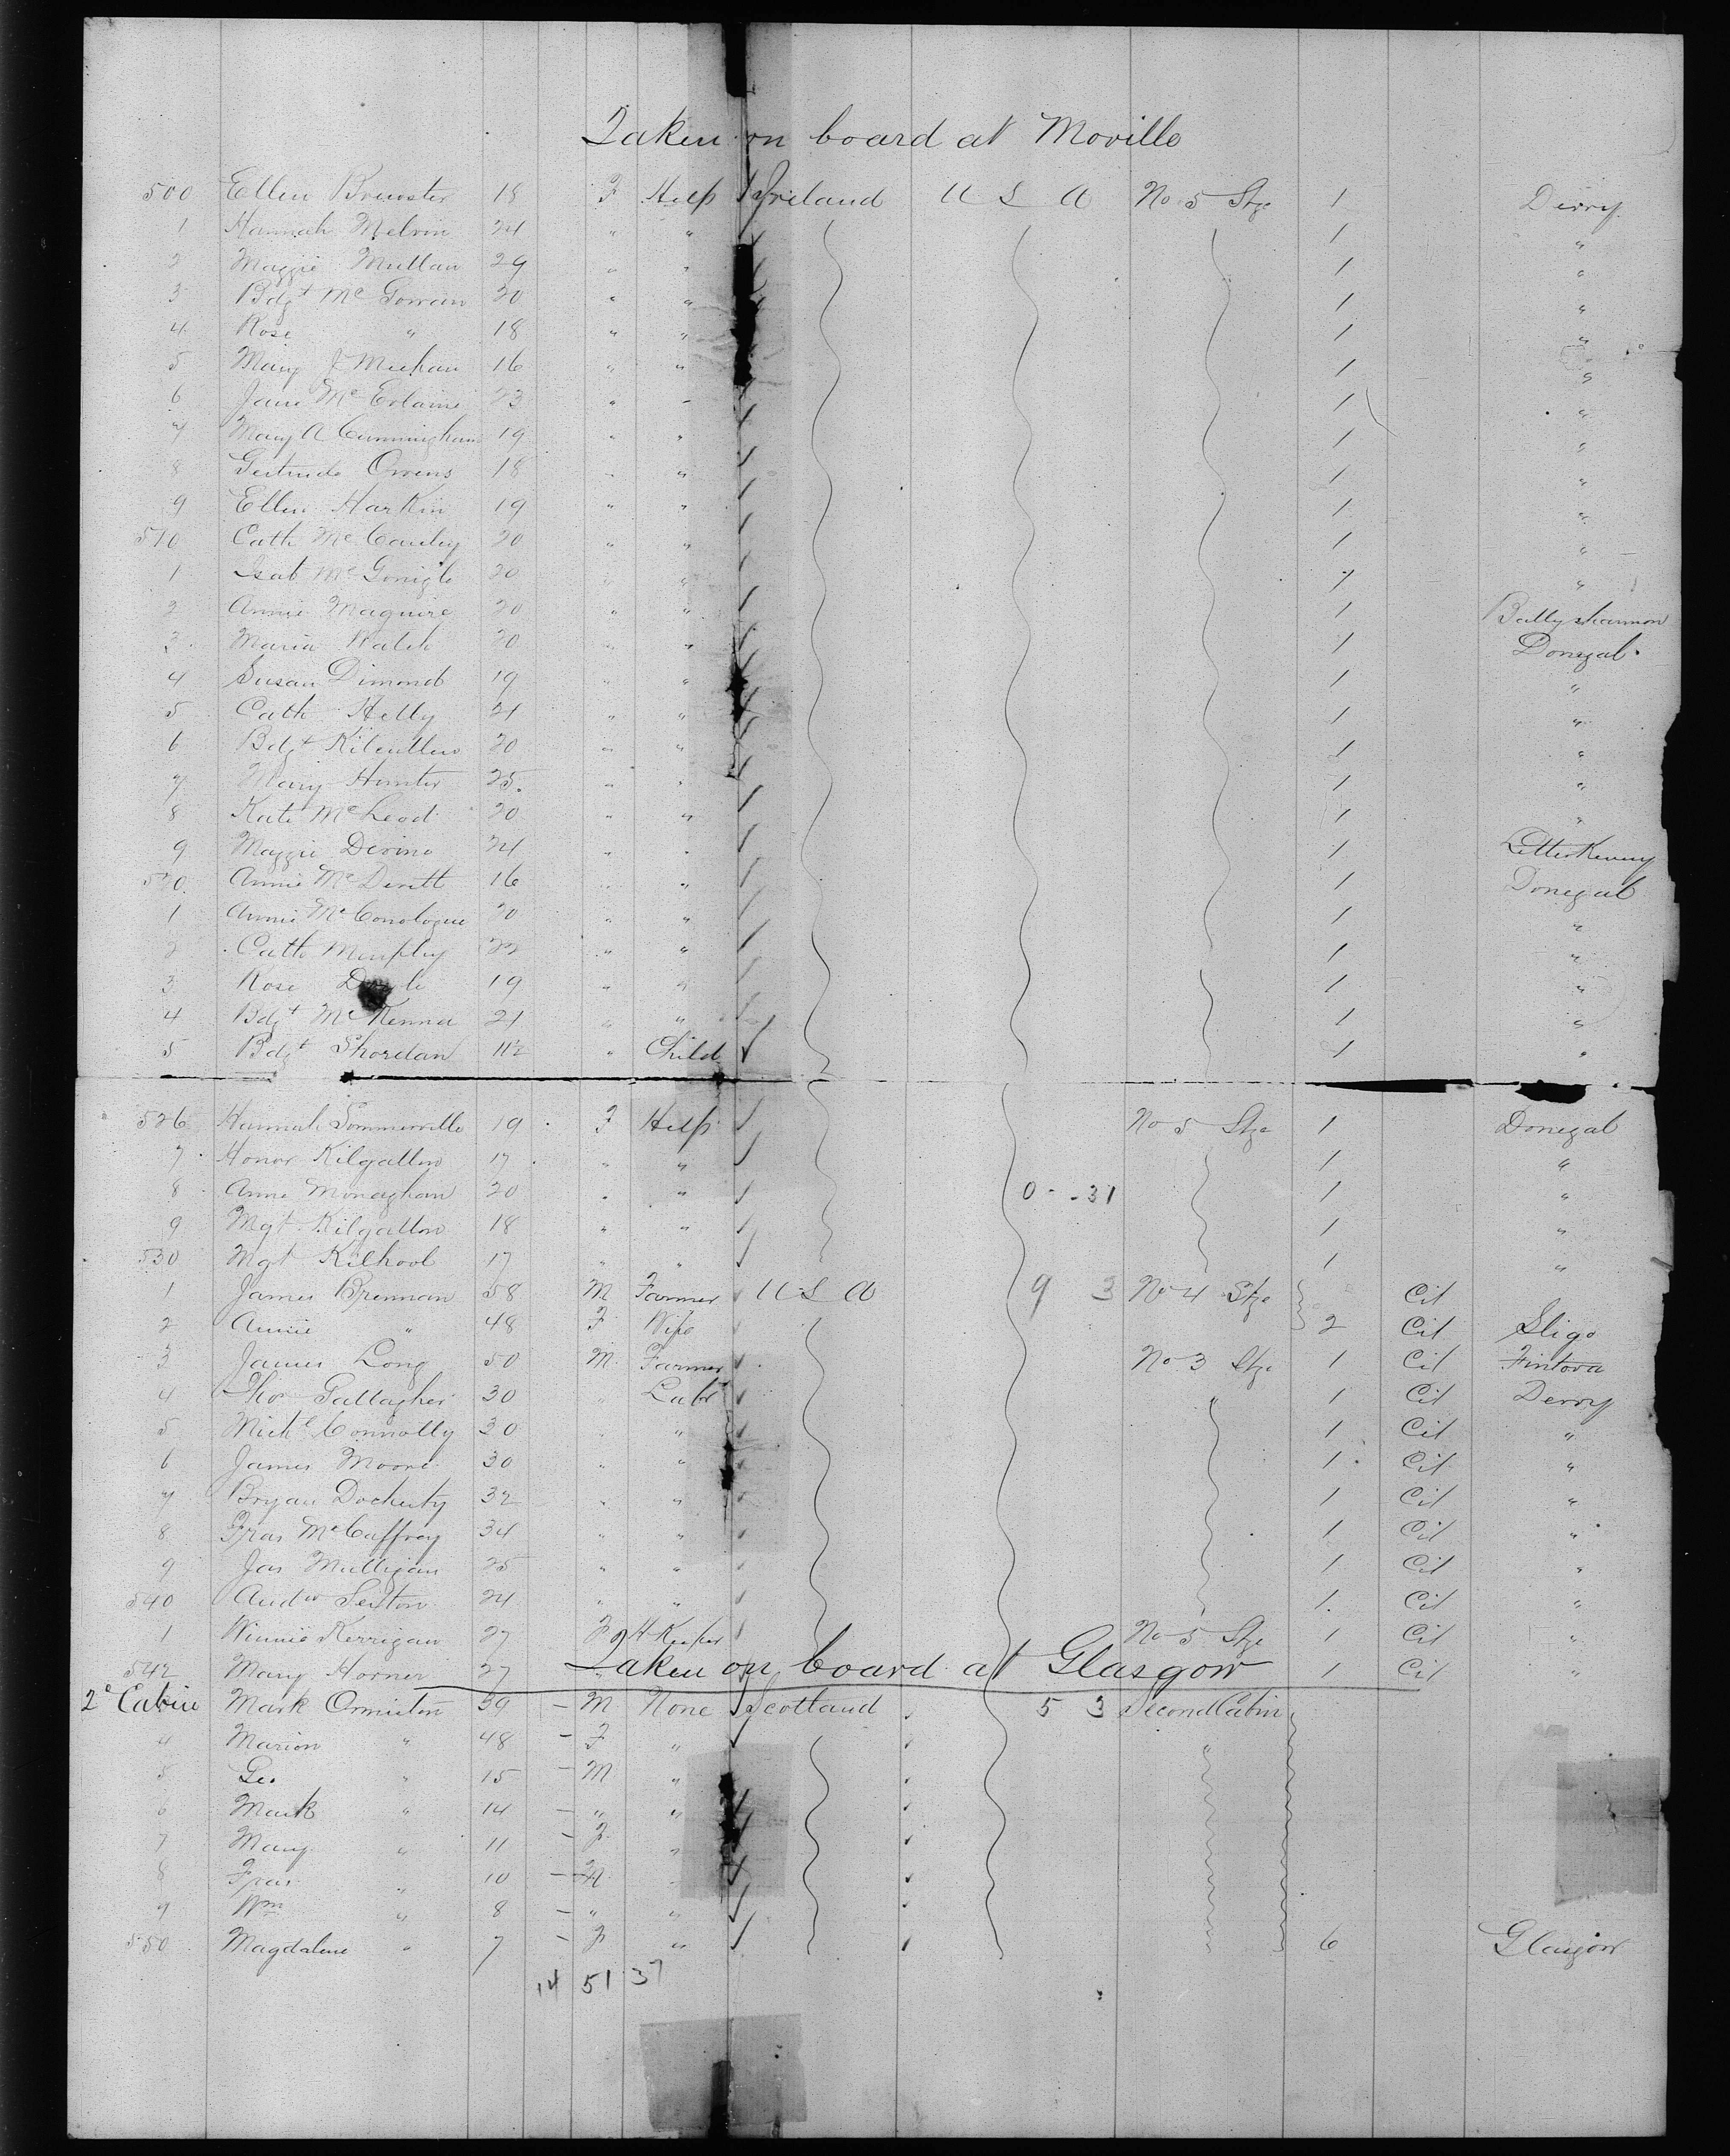 Taken on board at Moville
500 Ellen Brewster 18 F Help Ireland U S A No 5 Stge 1 Derry
1 Hannah Melvin 24 " " 1 "
2 Maggie Mullan 29 " " 1 "
3 Bdgt McGowan 20 " " 1 "
4 Rose " 18 " " 1 "
5 Mary J Meehan 16 " " 1 "
6 Jane McErlaine 23 " " 1 "
7 Mary A Cunningham 19 " " 1 "
8 Gertrude Owens 18 " " 1 "
9 Ellen Harkin 19 " " 1 "
510 Cath McCauley 20 " " 1 "
1 Isab McGonigle 20 " " 1 "
2 Annie Maguire 20 " " 1 Ballyshannon
3 Maria Walsh 20 " " 1 Donegal
4 Susan Dimond 19 " " 1 "
5 Cath Kelly 21 " " 1 "
6 Bdgt Kilcullen 20 " " 1 "
7 Mary Hunter 25 " " 1 "
8 Kate McLeod 20 " " 1 "
9 Maggie Devine 24 " " 1 Letterkenny
520 Annie McDevitt 16 " " 1 Donegal
1 Annie McConologue 20 " " 1 "
2 Cath Murphy 22 " " 1 "
3 Rose 19 " " 1 "
4 Bdgt McKenna 21 " " 1 "
5 Bdgt Shordan 11½ " Child 1 "
526 Hannah Sommerville 19 F Help No 5 Stge 1 Donegal
7 Honor Kilgallon 17 " " 1 "
8 Anne Monaghan 20 " " 0 - 31 1 "
9 Mgt Kilgallon 18 " " 1 "
530 Mgt Kilhool 17 " " 1 "
1 James Brennan 58 M Farmer U S A 9 3 No 4 Stge Cit
2 Annie " 48 F Wife 2 Cit Sligo
3 James Long 50 M Farmer No 3 Stge 1 Cit Fintona
4 Thos Gallagher 30 " Labr " 1 Cit Derry
5 Michl Connolly 30 " " 1 Cit "
6 James Moore 30 " " 1 Cit "
7 Bryan Docherty 32 " " 1 Cit "
8 Fras McCaffrey 34 " " 1 Cit "
9 Jas Mulligan 25 " " 1 Cit "
540 Andw Sexton 24 " " 1 Cit "
1 Winnie Kerrigan 27 F H Keeper No 5 Stge 1 Cit "
542 Mary Horner 27 " 1 Cit "
Taken on board at Glasgow
2e Cabin Mark Ormiston 39 - M None Scotland 5 3 Second Cabin
4 Marion " 48 - F " "
5 Geo. " 15 - M "
6 Mark " 14 - " "
7 Mary " 11 - F "
8 Fras " 10 - M "
9 Wm " 8 - " "
550 Magdalene " 7 - F " 6 Glasgow
14 51 37